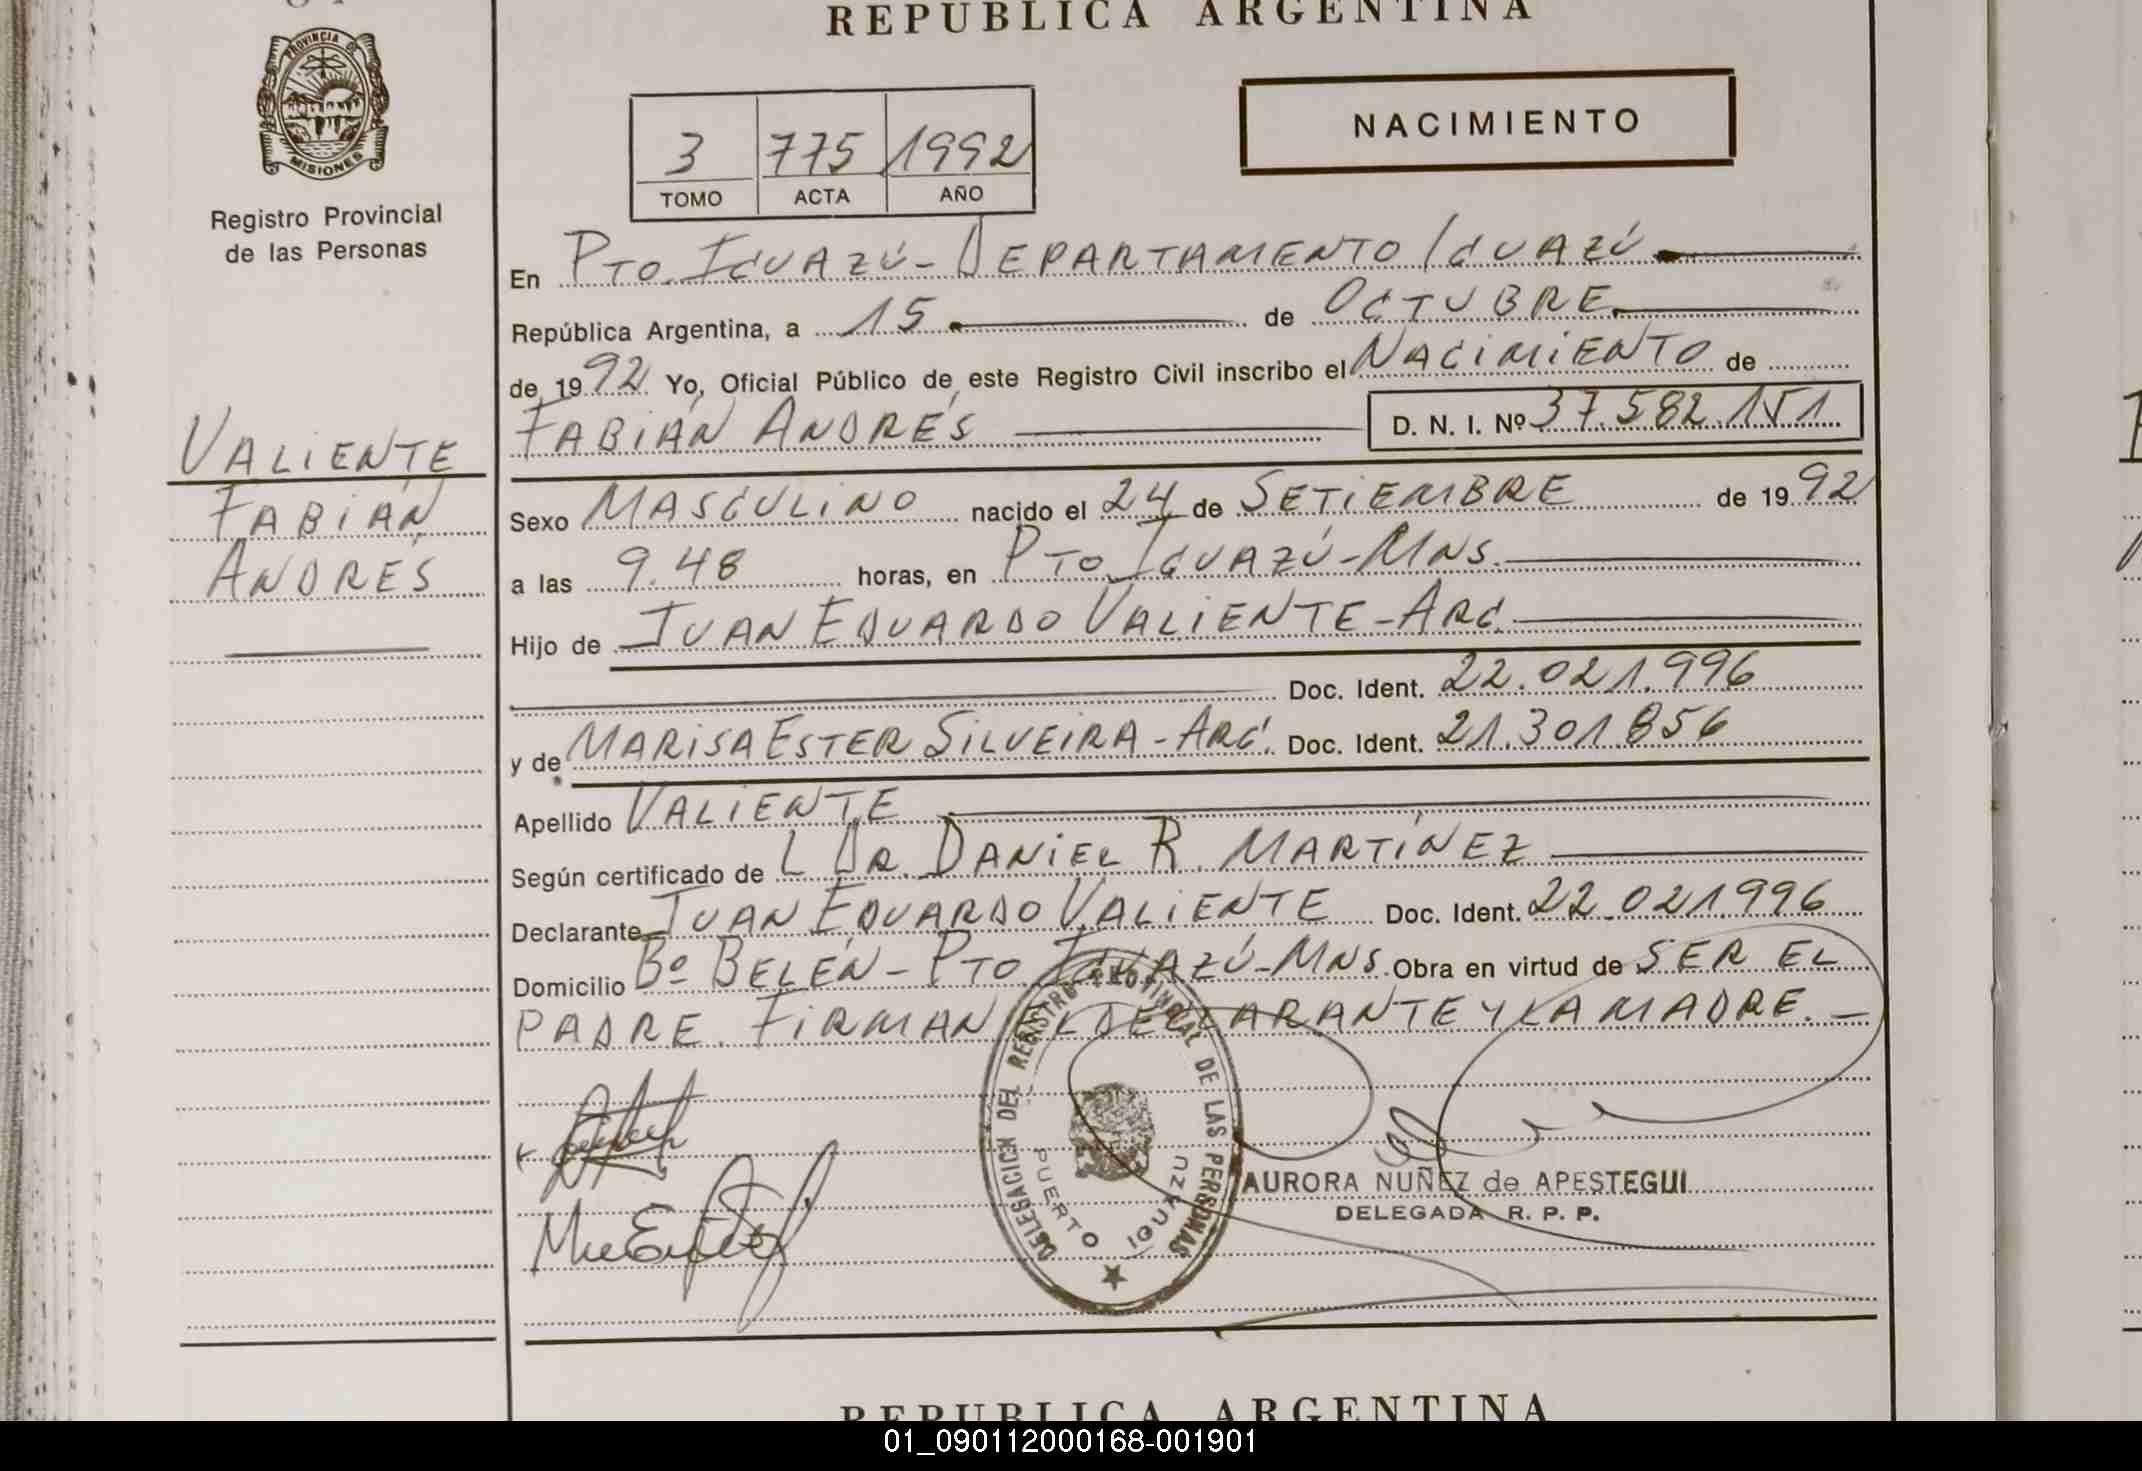 REPUBLICA ARGENTINA
PROVINCIA DE
MISIONES
Registro Provincial
de las Personas
3 775 1992
TOMO ACTA AÑO
NACIMIENTO
En PTO. IGUAZÚ - DEPARTAMENTO IGUAZÚ
República Argentina, a 15 de OCTUBRE
de 1992 Yo, Oficial Público de este Registro Civil inscribo el NACIMIENTO de
FABIÁN ANDRÉS D. N. I. Nº 37.582.151
VALIENTE
FABIÁN
ANDRÉS
Sexo MASCULINO nacido el 24 de SETIEMBRE de 1992
a las 9.48 horas, en PTO. IGUAZÚ - MNS.
Hijo de JUAN EDUARDO VALIENTE - ARG.
Doc. Ident. 22.021.996
y de MARISA ESTER SILVEIRA - ARG. Doc. Ident. 21.301.856
Apellido VALIENTE
Según certificado de L DR. DANIEL R. MARTÍNEZ
Declarante JUAN EDUARDO VALIENTE Doc. Ident. 22.021996
Domicilio Bº BELÉN - PTO IGUAZÚ - MNS. Obra en virtud de SER EL
PADRE. FIRMAN EL DECLARANTE Y LA MADRE. -
DELEGACION DEL REGISTRO PROVINCIAL DE LAS PERSONAS
PUERTO IGUAZU
AURORA NUÑEZ de APESTEGUI
DELEGADA R. P. P.
REPUBLICA ARGENTINA
01_090112000168-001901